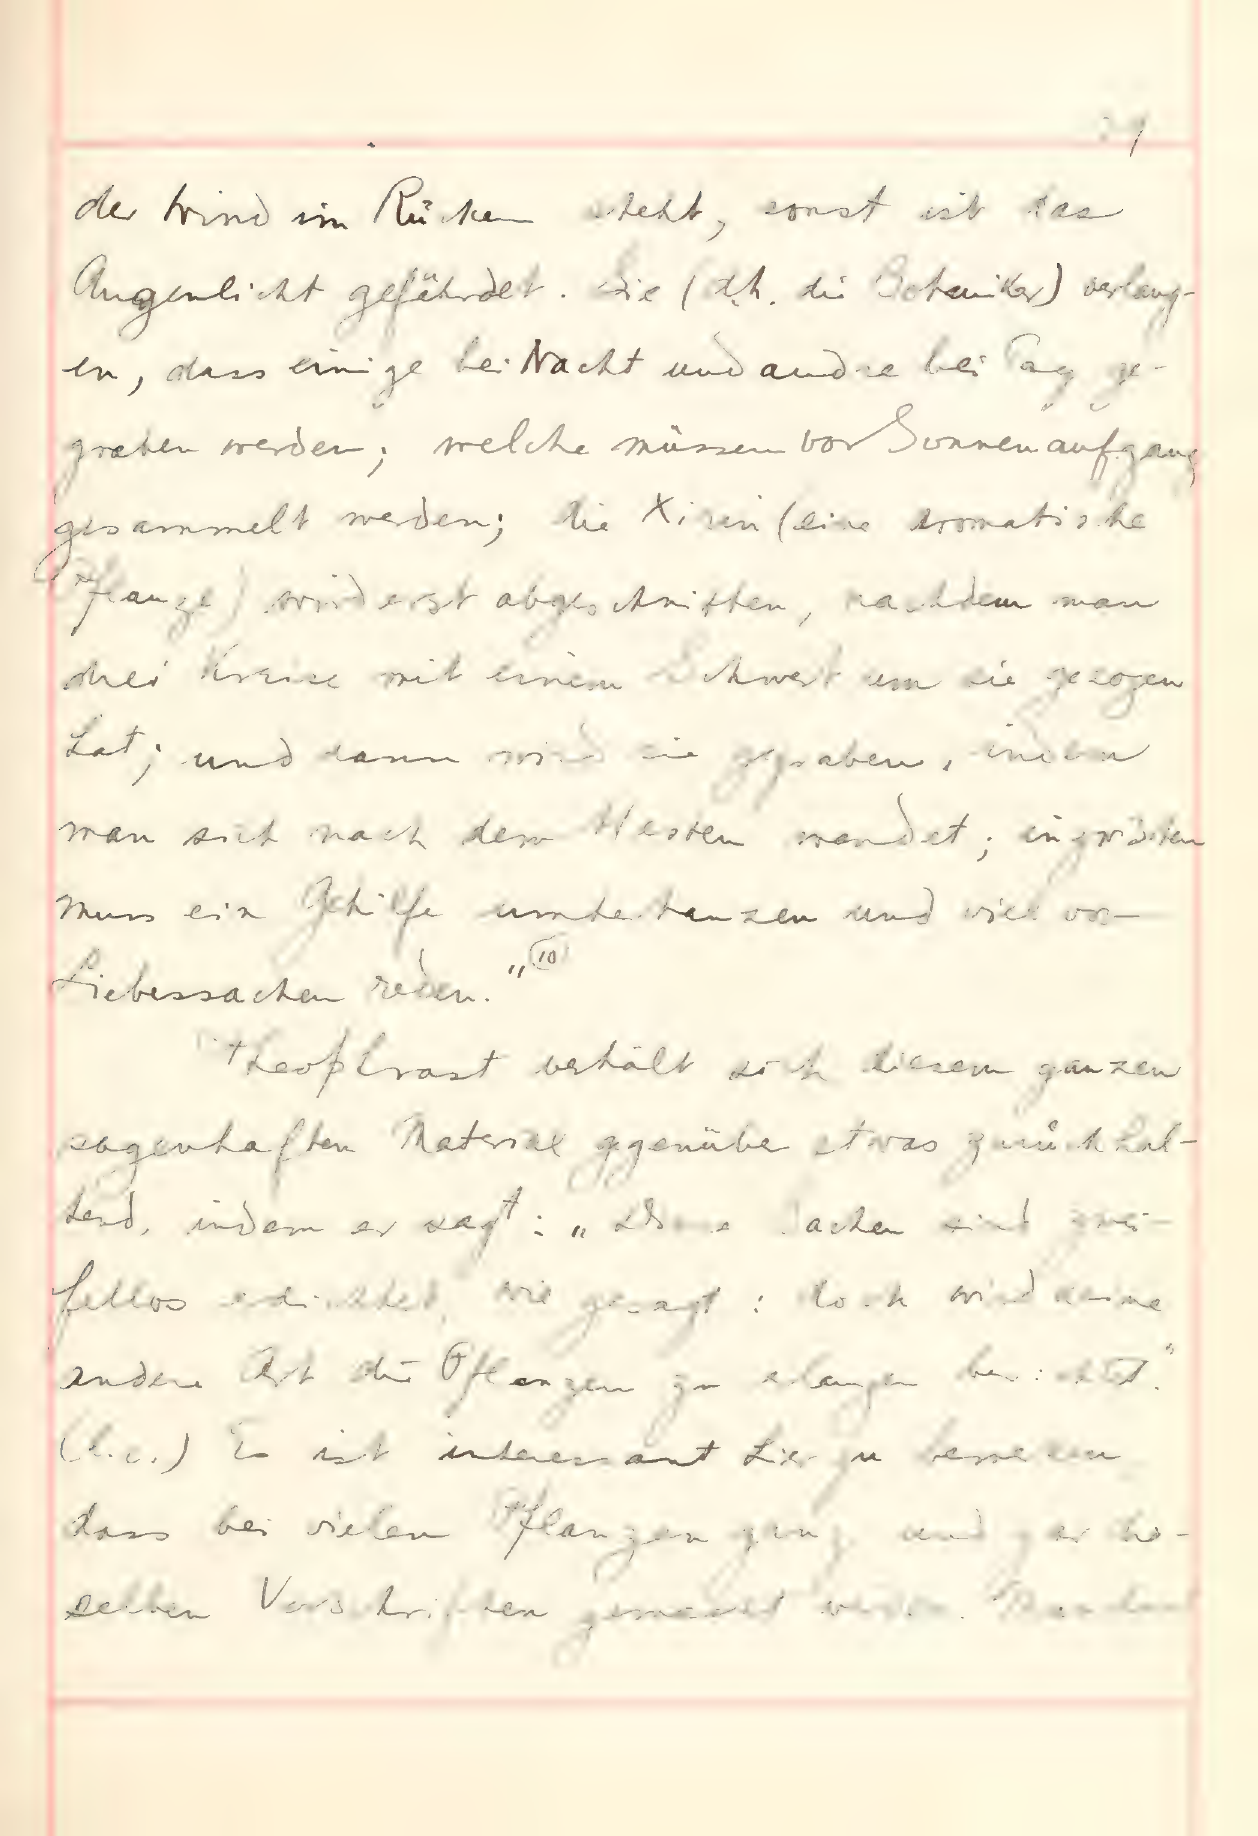 29
der Wind im Rücken steht, sonst ist das
Augenlicht gefährdet. Sie (d.h. die Botaniker) verlang-
en, dass einige bei Nacht und andre bei Tag ge-
graben werden; welche müssen vor Sonnenaufgang
gesammelt werden; die Xirin (eine aromatische
Pflanze) wird erst abgeschnitten, nachdem man
drei Kreise mit einem Schwert um sie gezogen
hat; und dann wird sie gegraben, indem
man sich nach dem Westen wendet;
muss ein Gehilfe umhertanzen und viel von
Liebessachen reden." (10)
Theophrast verhält sich diesem ganzen
sagenhaften Material gegenüber etwas zurückhal-
tend, indem er sagt: „Diese Sachen sind zwei-
fellos erdichtet, wie gesagt: doch wird keine
andere Art die Pflanzen zu erlangen berichtet."
(l.c.) Es ist interessant hier zu bemerken
dass bei vielen Pflanzen ganz und gar die-
selben Vorschriften gemacht werden.